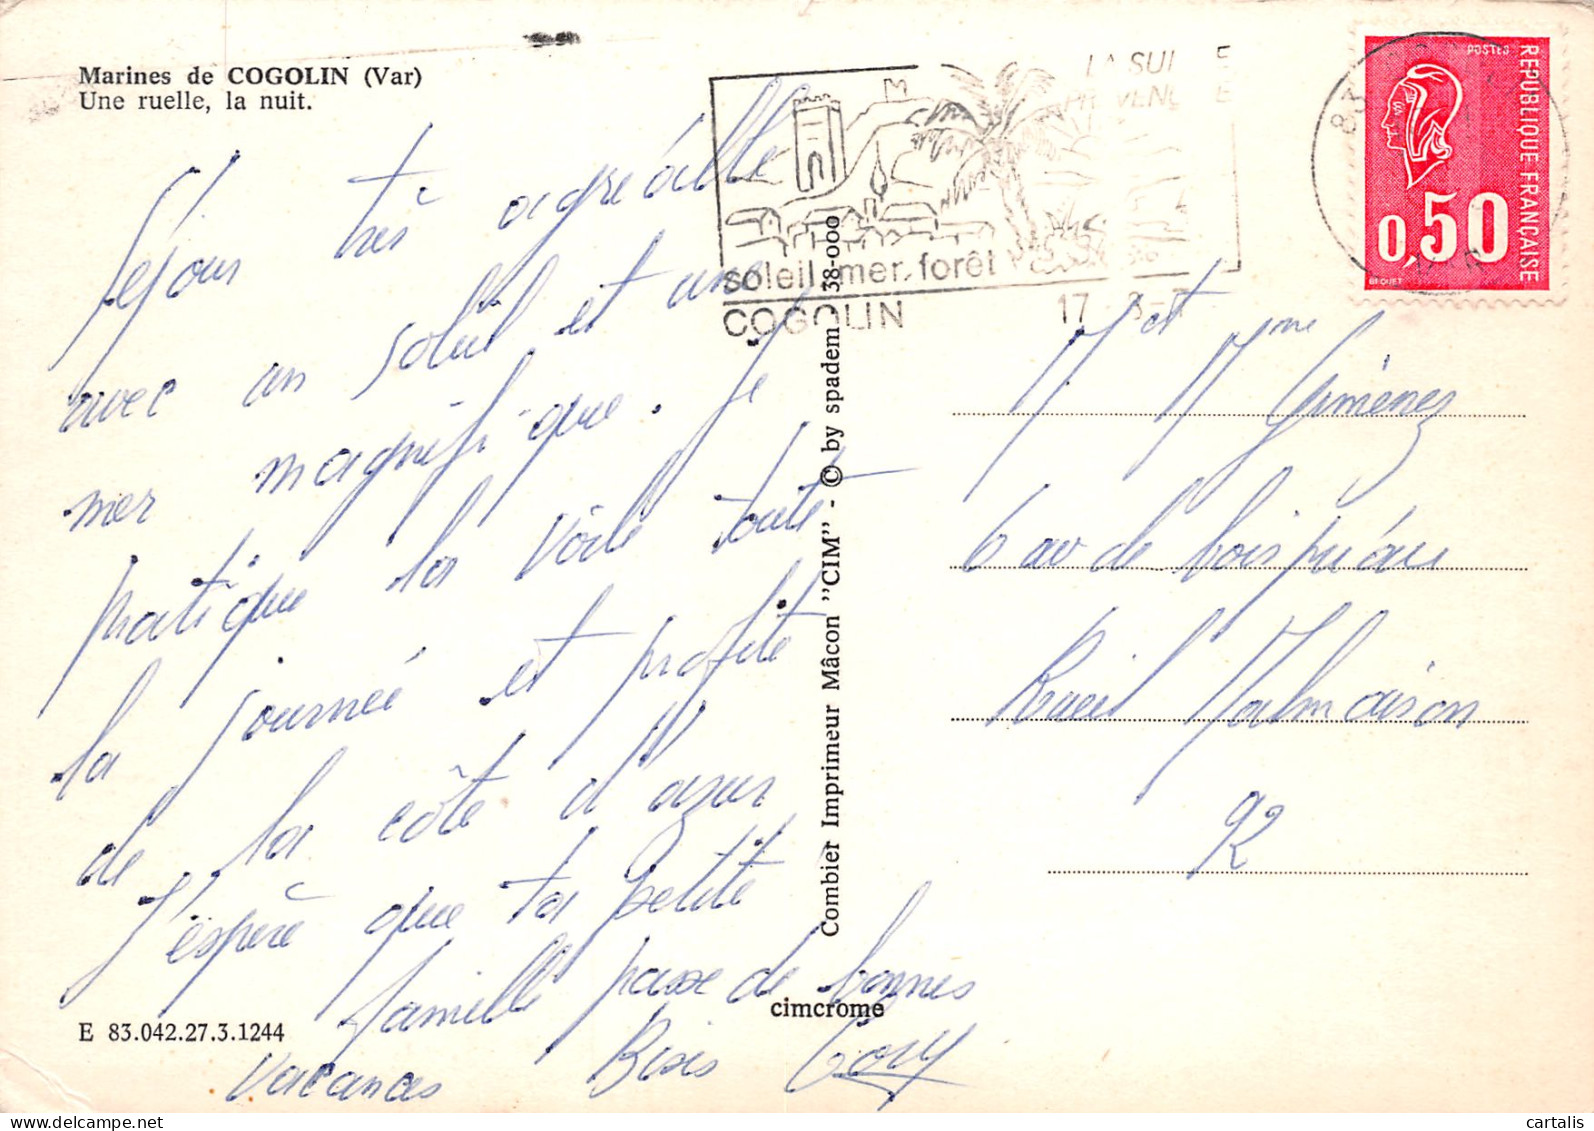 Marines de COGOLIN (Var)
Une ruelle, la nuit.
Séjour très agréable
avec un soleil et une
mer magnifique. Je
pratique la voile toute
la journée et profite
de la côte d'azur
J'espère que ta petite
famille passe de bonnes
vacances Bises
E 83.042.27.3.1244
cimcrome
Combier Imprimeur Mâcon "CIM" - © by spadem 38-000
soleil mer forêt
COGOLIN
17
83
POSTES
REPUBLIQUE FRANÇAISE
0,50
BEQUET
M et Mme Gimenez
6 av de bois préau
Rueil Malmaison
92
cartalis
www.delcampe.net